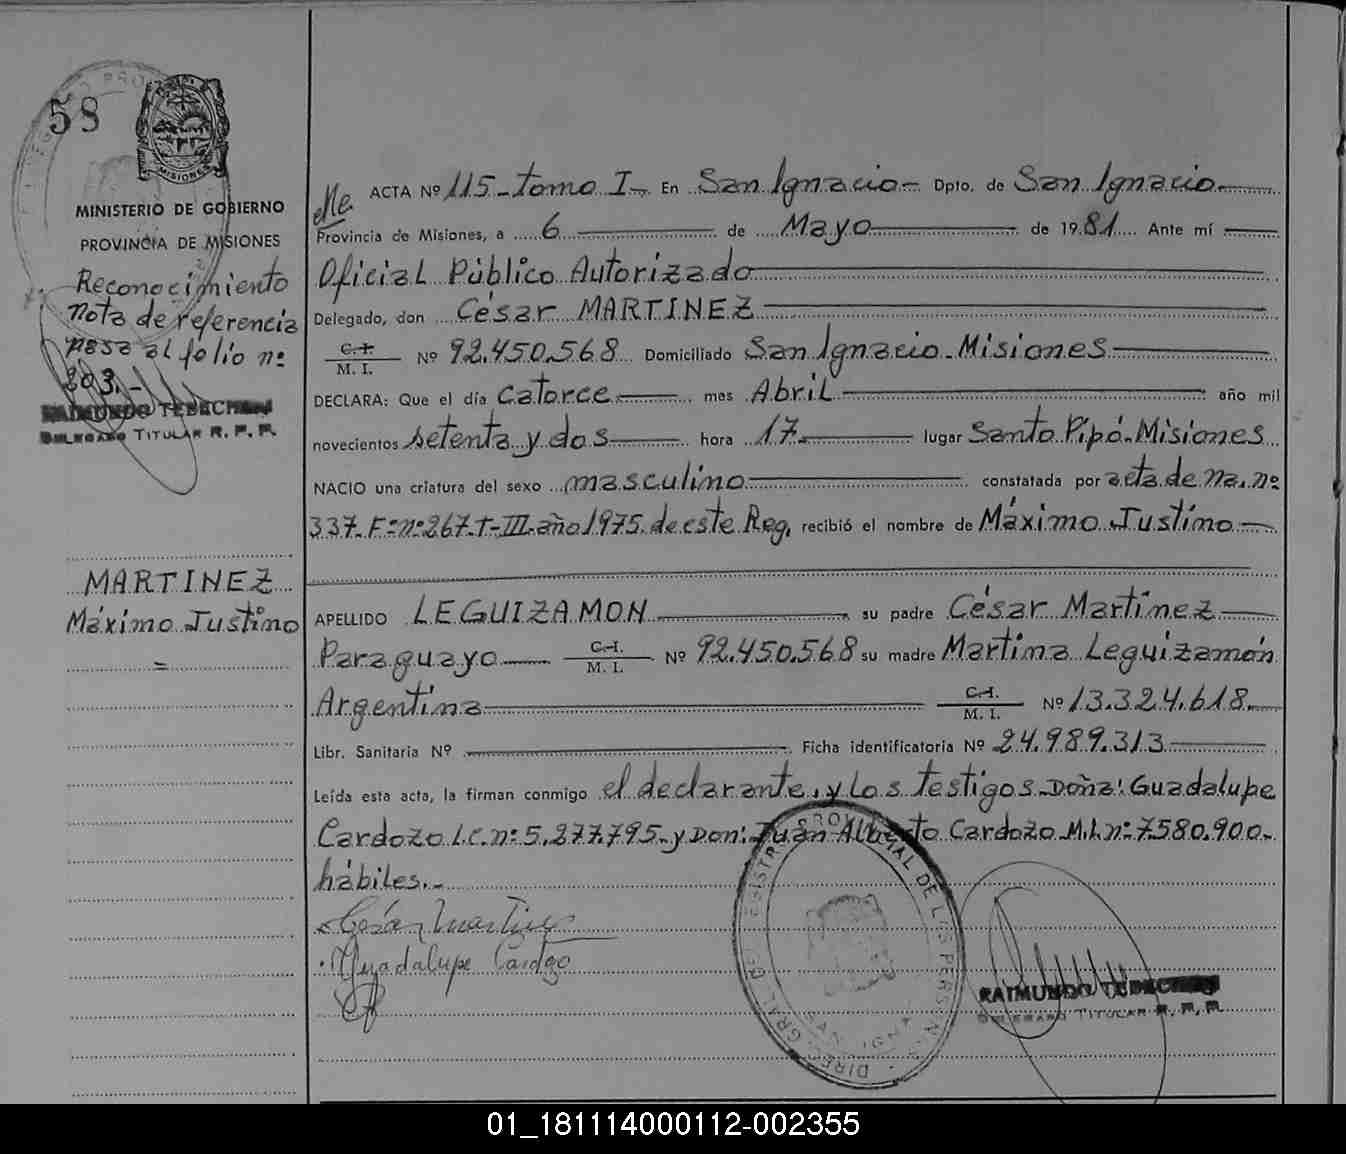 58
MISIONES
MINISTERIO DE GOBIERNO
PROVINCIA DE MISIONES
Reconocimiento
nota de referencia
pasa al folio nº
203.-
RAIMUNDO
DELEGADO TITULAR R. P. P.
MARTINEZ
Máximo Justino
=
ACTA Nº 115-tomo I. En San Ignacio- Dpto. de San Ignacio
Provincia de Misiones, a 6 de Mayo de 1981 Ante mí
Oficial Público Autorizado
Delegado, don César MARTINEZ
C. I. / M. I. Nº 92.450.568 Domiciliado San Ignacio-Misiones
DECLARA: Que el día catorce mes Abril año mil
novecientos setenta y dos hora 17 lugar Santo Pipó-Misiones
NACIO una criatura del sexo masculino constatada por acta de na. nº
337-Fº nº 267-T-III-año 1975 de este Reg, recibió el nombre de Máximo Justino
APELLIDO LEGUIZAMON su padre César Martínez
Paraguayo C. I. / M. I. Nº 92.450.568 su madre Martina Leguizamón
Argentina C. I. / M. I. Nº 13.324.618
Libr. Sanitaria Nº Ficha identificatoria Nº 24.989.313
Leída esta acta, la firman conmigo el declarante, y los testigos-Doña: Guadalupe
Cardozo L.C. nº 5.277.795-y Don: Juan Alberto Cardozo M.I. nº 7.580.900-
hábiles.-
César Martinez
Guadalupe Cardozo
DIREC. GRAL. DEL REGISTRO PROVINCIAL DE LAS PERSONAS
RAIMUNDO
DELEGADO TITULAR R. P. P.
01_181114000112-002355